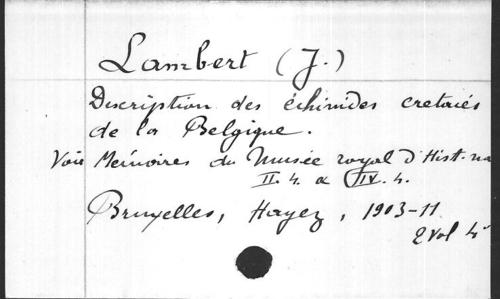 Lambert (J.)
Description des échinides cretacés
de la Belgique.
Voir Mémoires du Musée royal d'Hist. na
II. 4. a IV. 4.
Bruxelles, Hayez, 1903-11
2 vol 4°